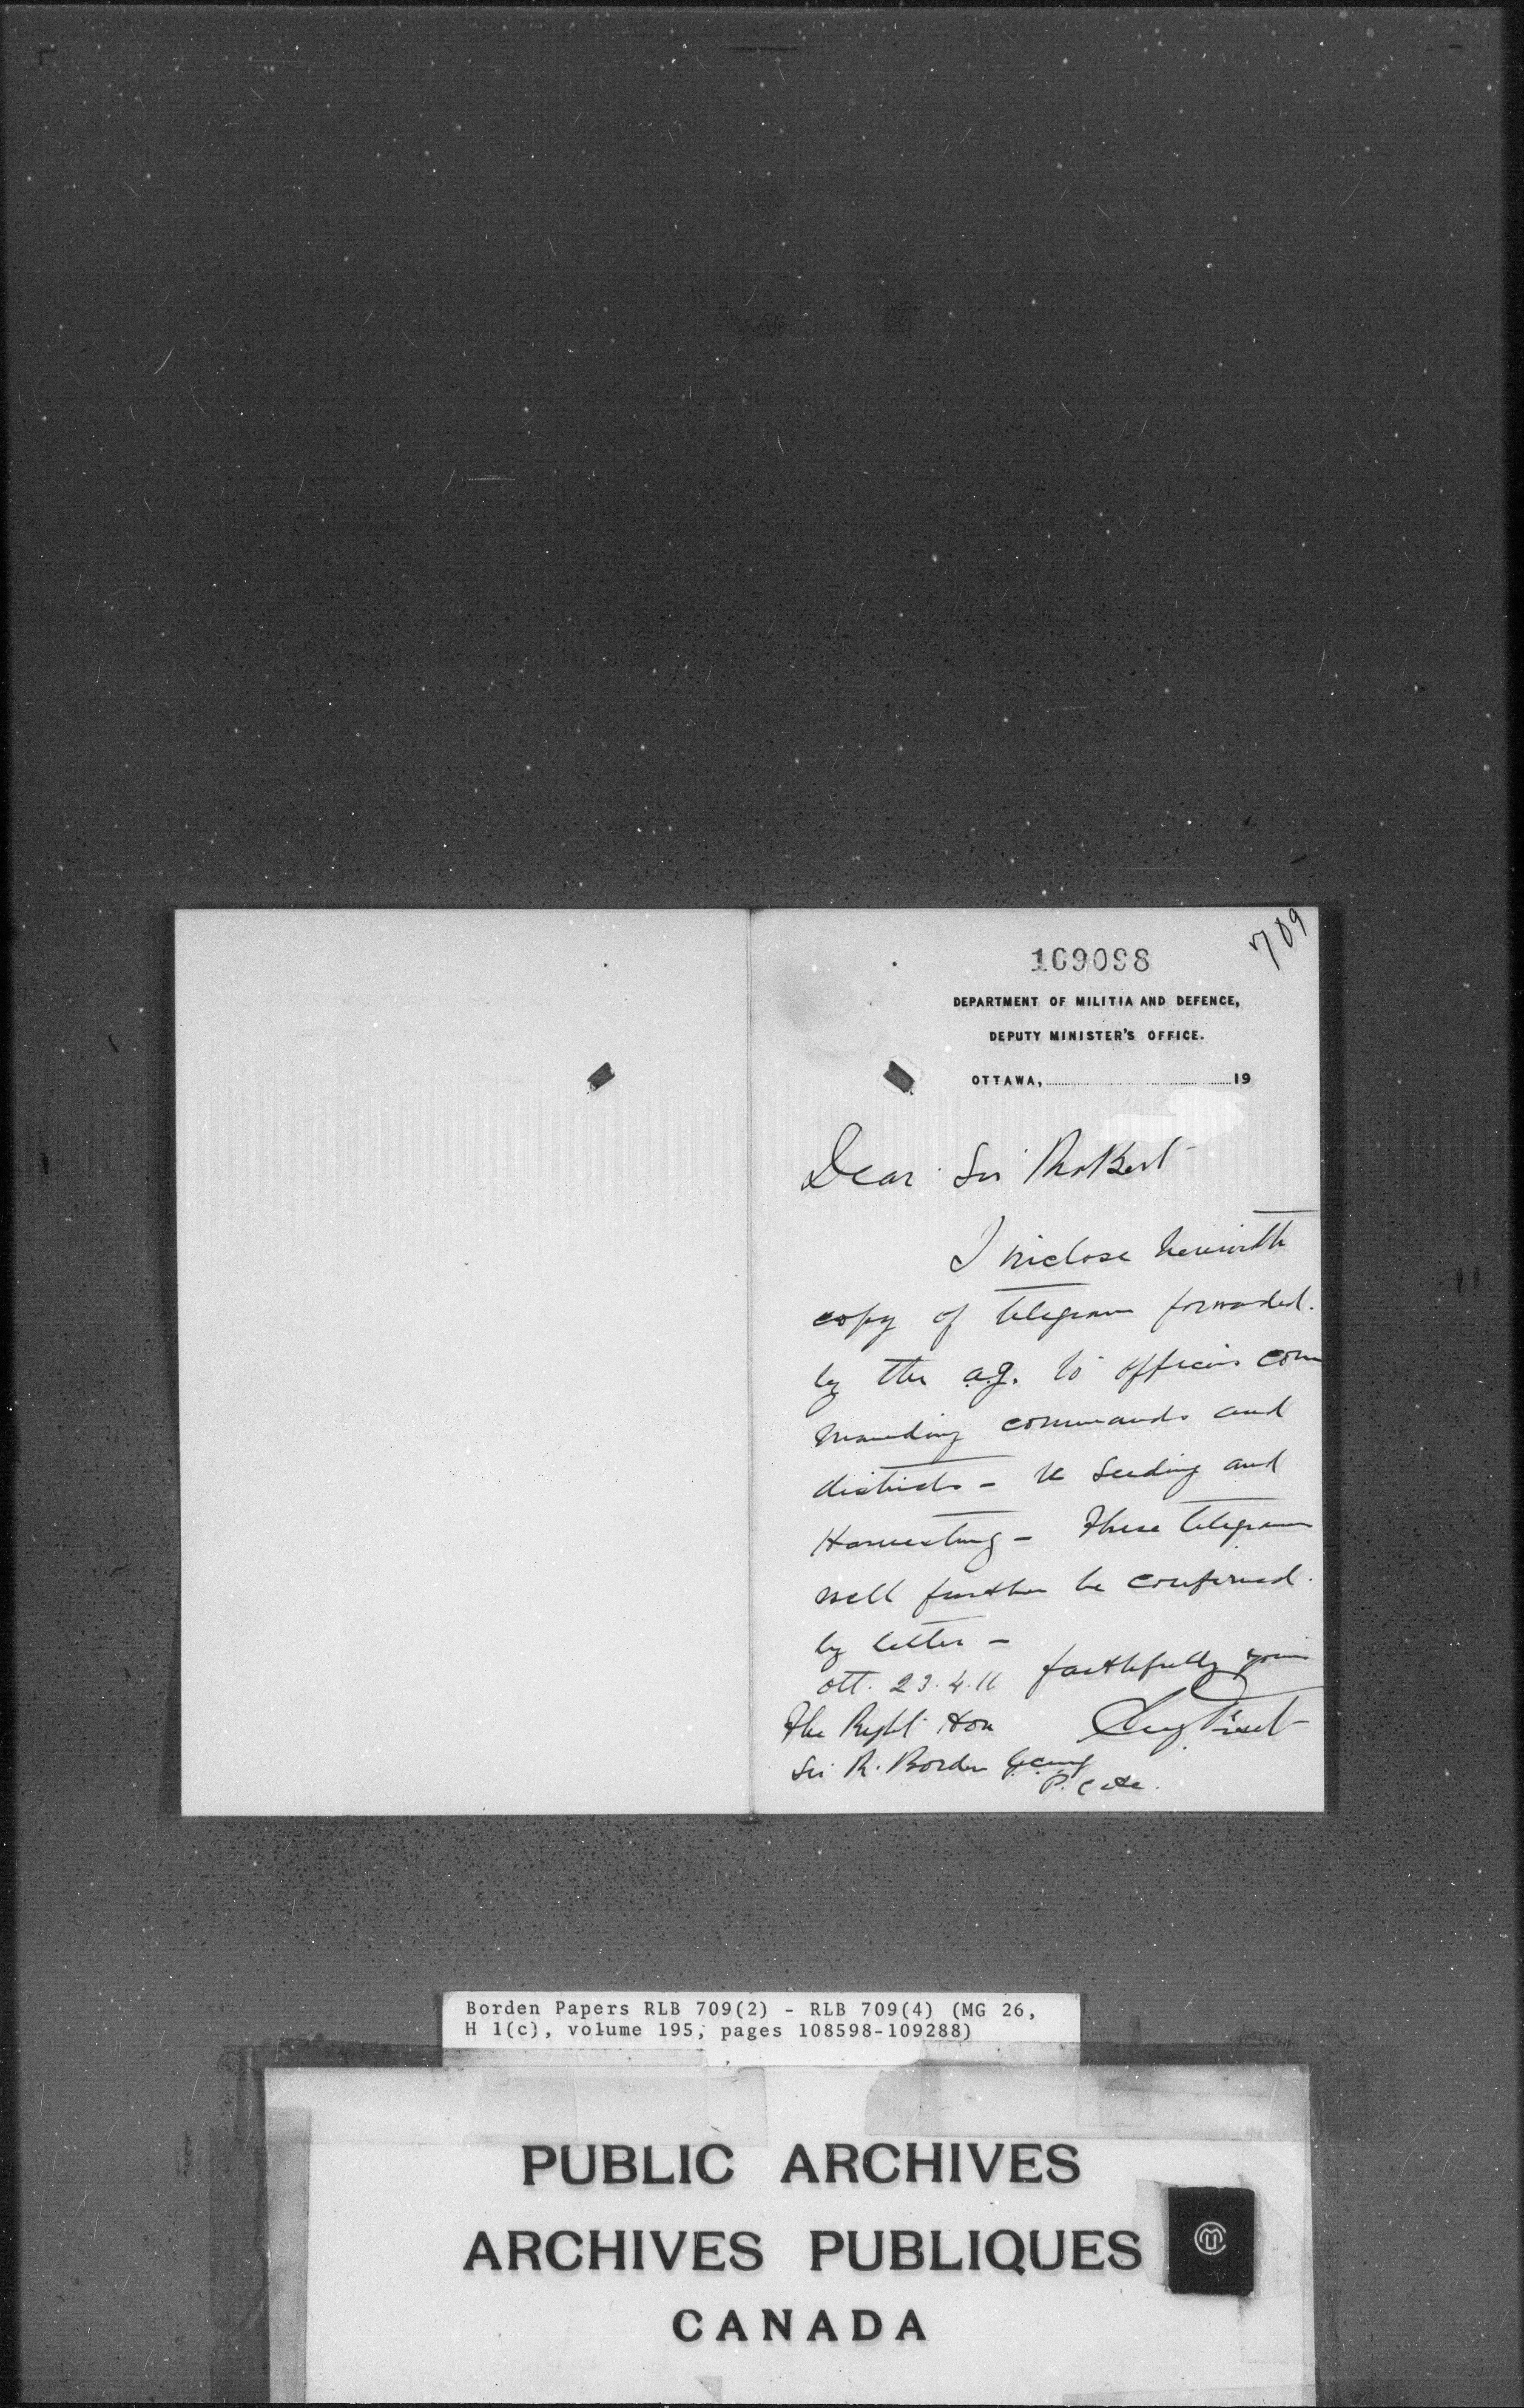 709
109098
DEPARTMENT OF MILITIA AND DEFENCE,
DEPUTY MINISTER'S OFFICE.
OTTAWA, 19
Dear Sir Robert
I inclose herewith
copy of telegram forwarded
by the a.g. to officers com
manding commands and
districts - re seeding and
Harvesting - These telegrams
will further be confirmed
by letter -
ott. 23.4.16 faithfully yours
The Right Hon Eug Fiset
Sir R. Borden gcmg
P.C etc.
Borden Papers RLB 709(2) - RLB 709(4) (MG 26,
H 1(c), volume 195, pages 108598-109288)
PUBLIC ARCHIVES
ARCHIVES PUBLIQUES
CANADA